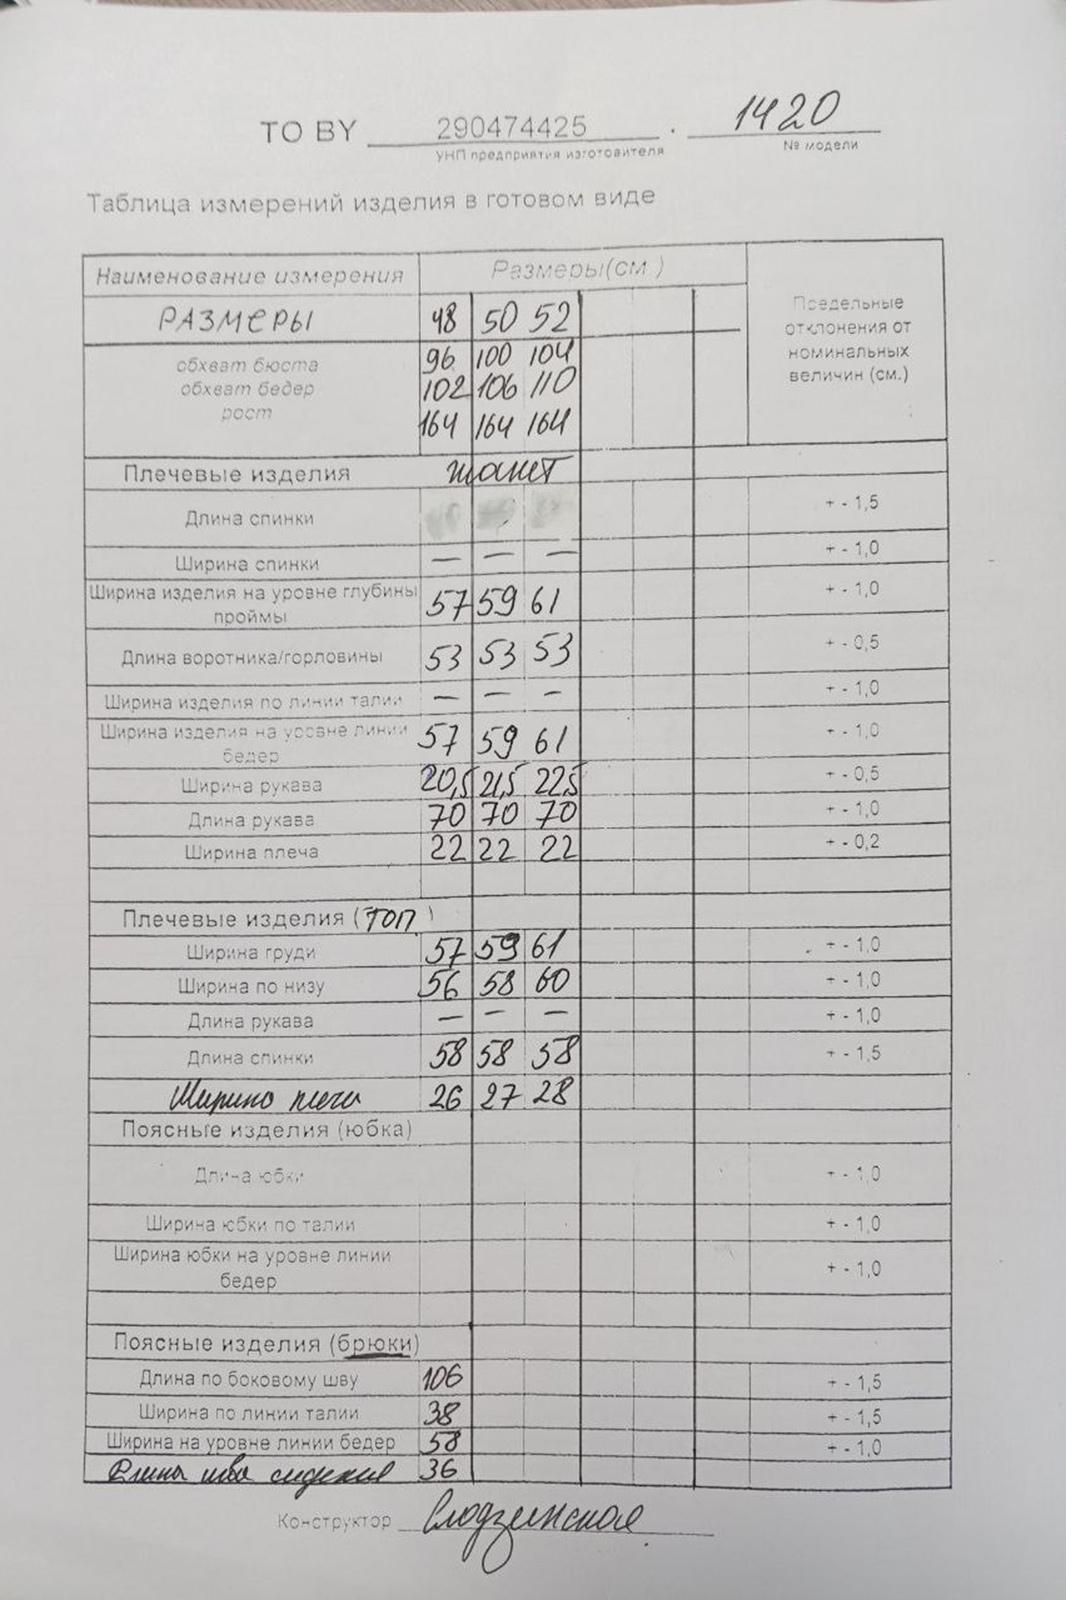 ТО BY 290474425 . 1420
УНП предприятия изготовителя № модели
Таблица измерений изделия в готовом виде
Наименование измерения Размеры(см ) Предельные отклонения от номинальных величин (см.)
РАЗМЕРЫ 48 50 52
обхват бюста 96 100 104
обхват бедер 102 106 110
рост 164 164 164
Плечевые изделия жакет
Длина спинки + - 1,5
Ширина спинки — — — + - 1,0
Ширина изделия на уровне глубины проймы 57 59 61 + - 1,0
Длина воротника/горловины 53 53 53 + - 0,5
Ширина изделия по линии талии — — — + - 1,0
Ширина изделия на уровне линии бедер 57 59 61 + - 1,0
Ширина рукава 20,5 21,5 22,5 + - 0,5
Длина рукава 70 70 70 + - 1,0
Ширина плеча 22 22 22 + - 0,2
Плечевые изделия (ТОП)
Ширина груди 57 59 61 + - 1,0
Ширина по низу 56 58 60 + - 1,0
Длина рукава — — — + - 1,0
Длина спинки 58 58 58 + - 1,5
Ширина плеча 26 27 28
Поясные изделия (юбка)
Длина юбки + - 1,0
Ширина юбки по талии + - 1,0
Ширина юбки на уровне линии бедер + - 1,0
Поясные изделия (брюки)
Длина по боковому шву 106 + - 1,5
Ширина по линии талии 38 + - 1,5
Ширина на уровне линии бедер 58 + - 1,0
Длина шва сидения 36
Конструктор Слодзинская